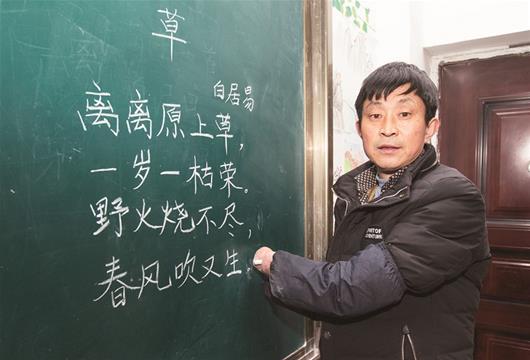 草
白居易
离离原上草，
一岁一枯荣。
野火烧不尽，
春风吹又生